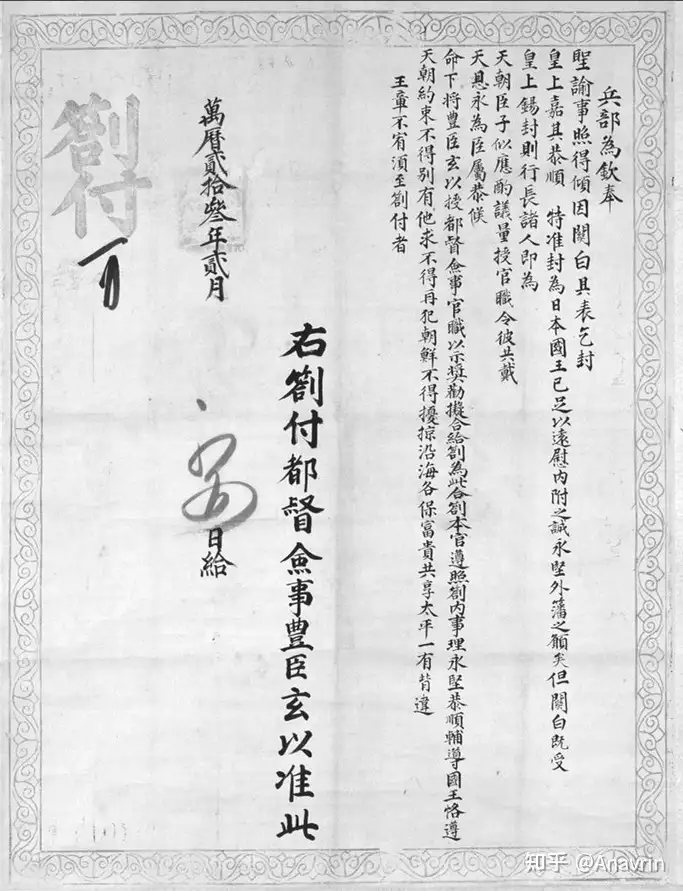 兵部為欽奉
聖諭事照得頃因關白具表乞封
皇上嘉其恭順　特准封為日本國王已足以遠慰內附之誠永堅外藩之願矣但關白既受
皇上錫封則行長諸人即為
天朝臣子似應酌議量授官職令彼共戴
天恩永為臣屬恭候
命下將豊臣玄以授都督僉事官職以示奬勸擬合給劄為此合劄本官遵照劄內事理永堅恭順輔導國王恪遵
天朝約束不得別有他求不得再犯朝鮮不得擾掠沿海各保富貴共享太平一有背違
王章不宥須至劄付者
右劄付都督僉事豊臣玄以准此
萬曆貳拾叄年貳月
日給
劄付
知乎 @Anavrin